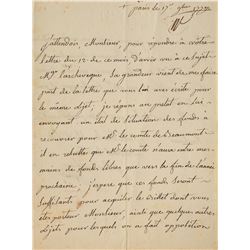 + paris le 17 9bre 1772
J'attendois, Monsieur, pour répondre à votre
lettre du 12 de ce mois d'avoir vu à ce sujet
Mgr l'archeveque, Sa grandeur vient de me faire
part de la lettre que vous lui avez ecrite pour
le même objet, je répons au prelat en lui
envoyant un etat de situation des fonds à
recouvrer pour M. le comte de Beaumont
il en resulte que M. le comte n'aura entre mes
mains de fonds libres que vers la fin de l'année
prochaine, j'espere que ces fonds seront
suffisants pour acquiter le billet dont vous
etes porteur Monsieur, ainsi que quelques autres
objets pour lesquels on a fait opposition